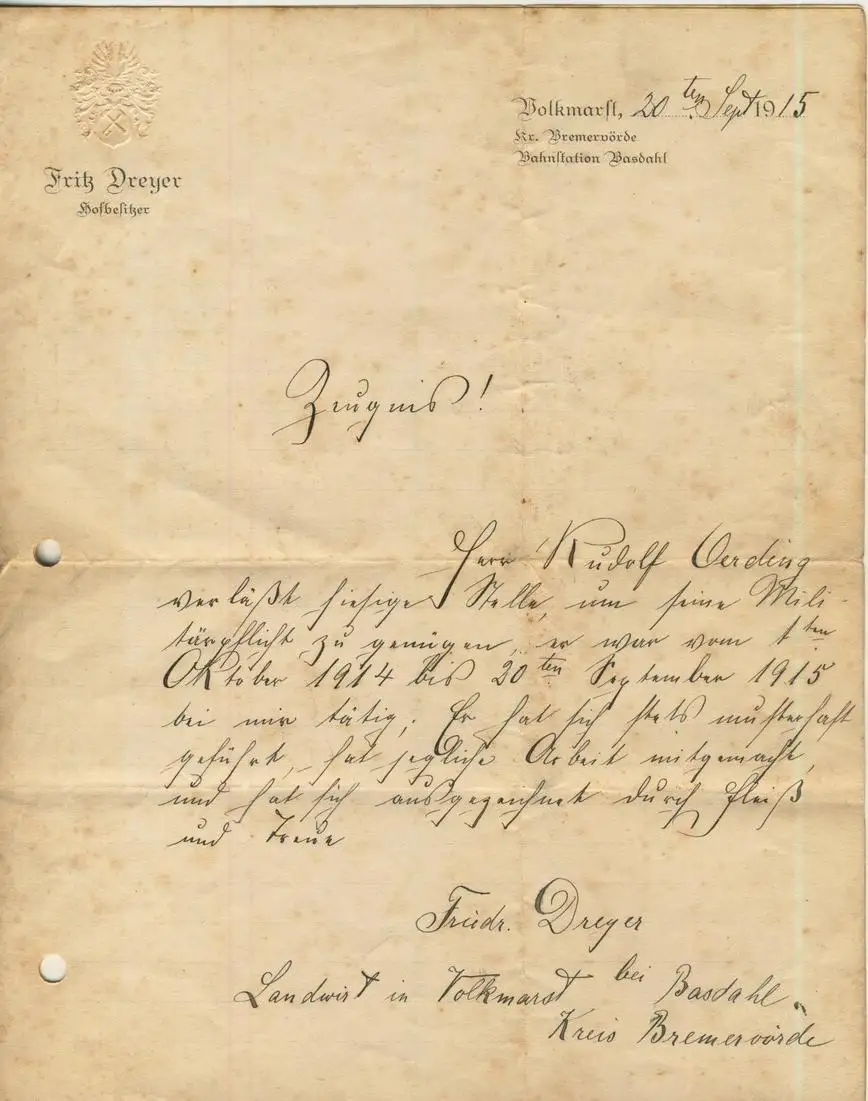 Volkmarst, 20ten Sept 1915
Kr. Bremervörde
Bahnstation Basdahl
Fritz Dreyer
Hofbesitzer
Zeugnis!
Herr Rudolf Oerding
verläßt hiesige Stelle, um seine Mili-
tärpflicht zu genügen, er war vom 1ten
Oktober 1914 bis 20ten September 1915
bei mir tätig. Er hat sich stets musterhaft
geführt, hat jegliche Arbeit mitgemacht,
und hat sich ausgezeichnet durch Fleiß
und Treue
Friedr. Dreyer
Landwirt in Volkmarst bei Basdahl.
Kreis Bremervörde